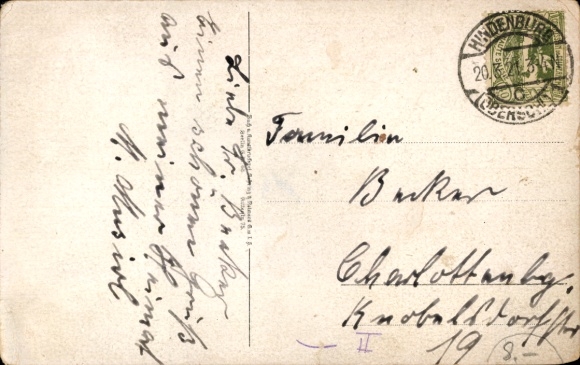 Liebe Fr. Becker
einen schönen Gruß
aus meiner Heimat
M. Musiol
Familie
Becker
Charlottenbg.
Knobelsdorffstr
19
II
8.-
HINDENBURG
20.3.21
C
(OBERSCHL.)